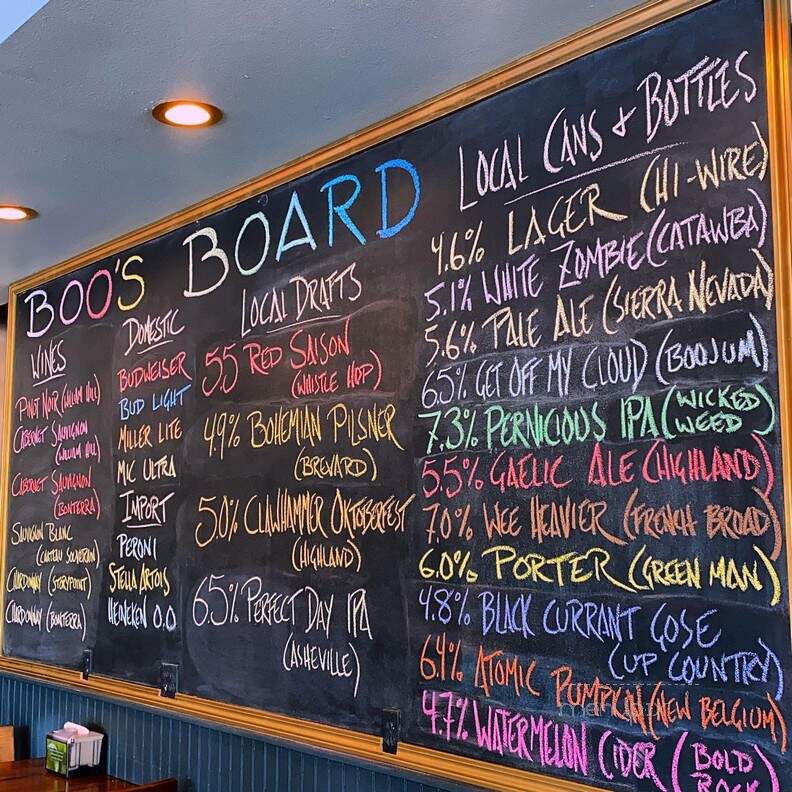 BOO'S BOARD
WINES
PINOT NOIR (WILLIAM HILL)
CABERNET SAUVIGNON
(WILLIAM HILL)
CABERNET SAUVIGNON
(BONTERRA)
SAUVIGNON BLANC
(CHATEAU SOUVERAIN)
CHARDONNAY (STORYPOINT)
CHARDONNAY (BONTERRA)
DOMESTIC
BUDWEISER
BUD LIGHT
MILLER LITE
MIC ULTRA
IMPORT
PERONI
STELLA ARTOIS
HEINEKEN 0.0
LOCAL DRAFTS
5.5 RED SAISON
(WHISTLE HOP)
4.9% BOHEMIAN PILSNER
(BREVARD)
5.0% CLAWHAMMER OKTOBERFEST
(HIGHLAND)
6.5% PERFECT DAY IPA
(ASHEVILLE)
LOCAL CANS & BOTTLES
4.6% LAGER (HI-WIRE)
5.1% WHITE ZOMBIE (CATAWBA)
5.6% PALE ALE (SIERRA NEVADA)
6.5% GET OFF MY CLOUD (BOOJUM)
7.3% PERNICIOUS IPA (WICKED
WEED)
5.5% GAELIC ALE (HIGHLAND)
7.0% WEE HEAVIER (FRENCH BROAD)
6.0% PORTER (GREEN MAN)
4.8% BLACK CURRANT GOSE
(UP COUNTRY)
6.4% ATOMIC PUMPKIN (NEW BELGIUM)
4.7% WATERMELON CIDER (BOLD
ROCK)